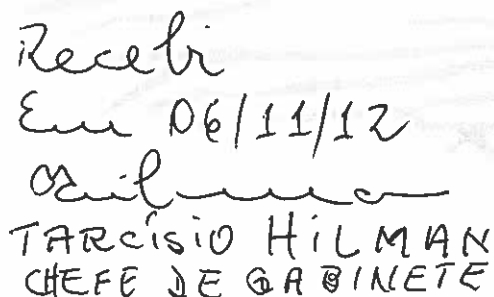 Recebi
Em 06/11/12
TARCÍSIO HILMAN
CHEFE DE GABINETE